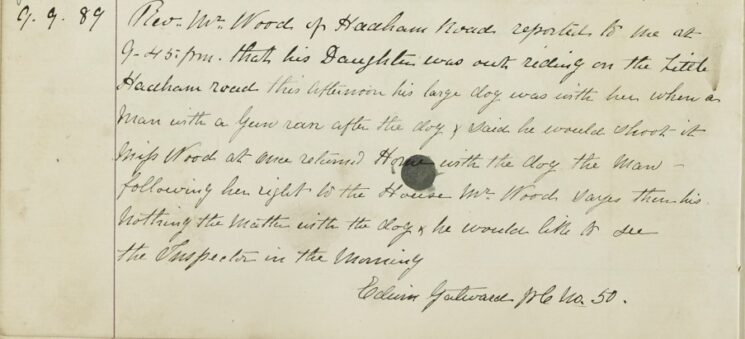 9.9.89 Rev. Mr. Wood of Hadham Road reported to me at
9-45 pm. that his Daughter was out riding on the Little
Hadham road this afternoon his large dog was with her when a
man with a Gun ran after the dog & said he would shoot it
Miss Wood at once returned Home with the dog the Man -
following her right to the House Mr. Wood sayes ther his
Nothing the Matter with the dog & he would like to see
the Inspector in the Morning
Edwin Gatward PC No. 50.